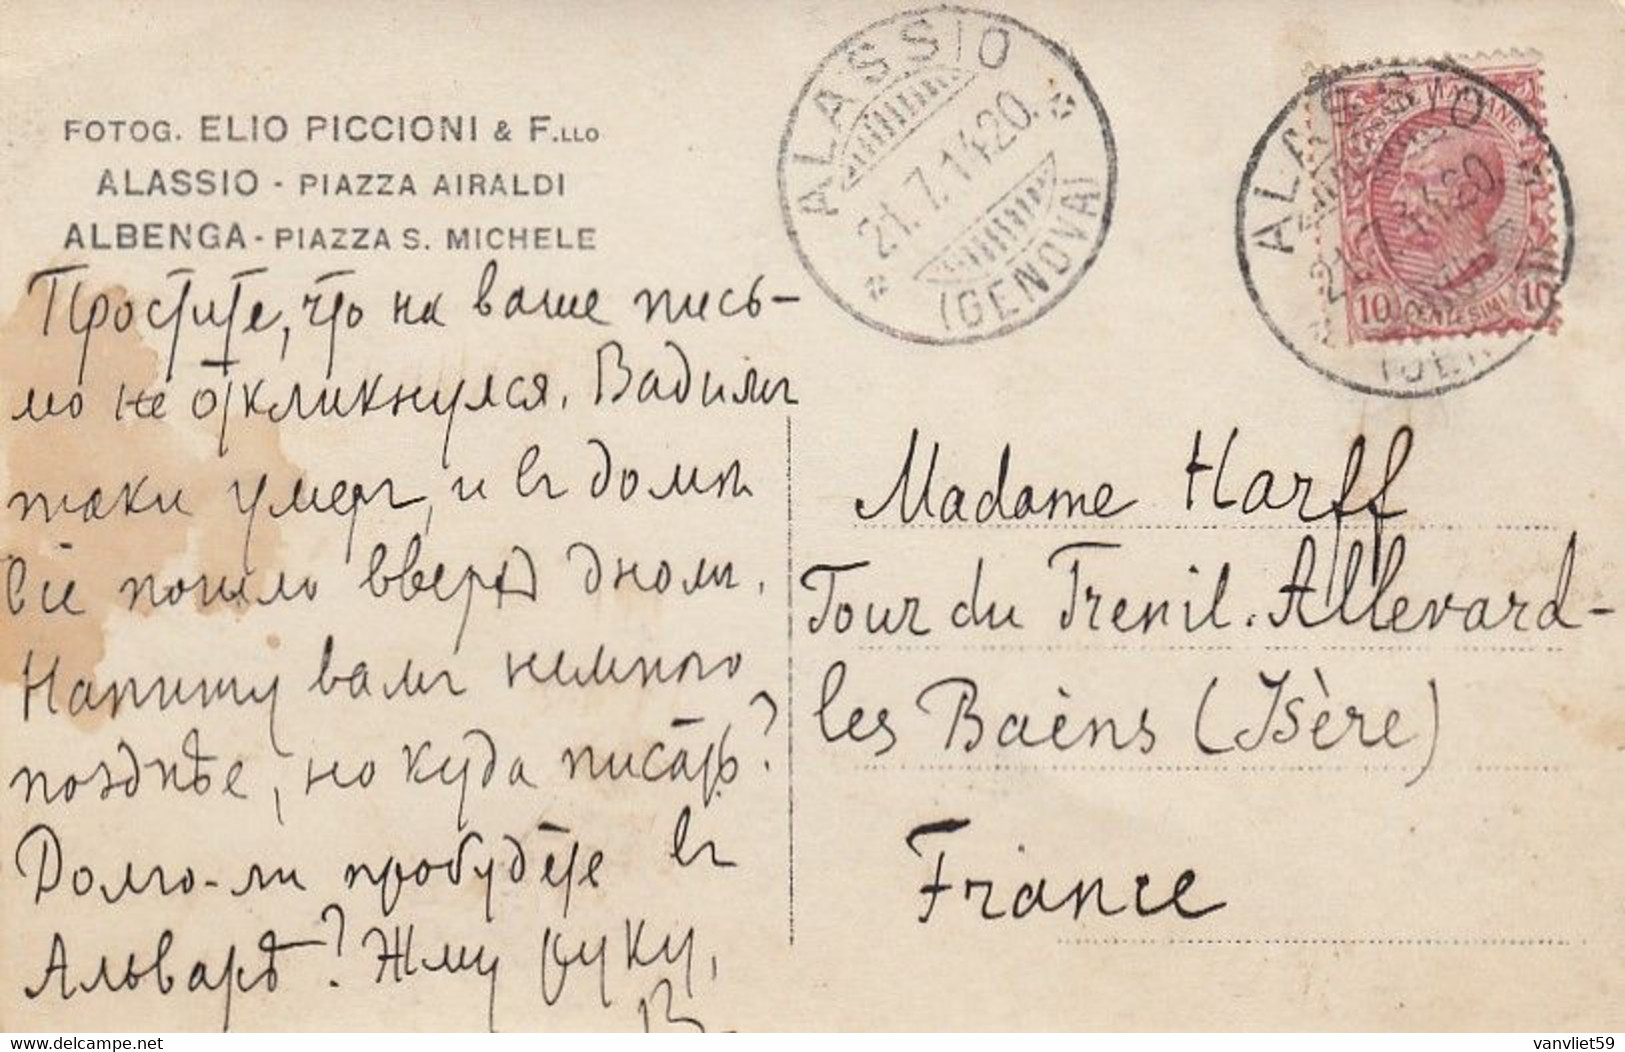 FOTOG. ELIO PICCIONI & F.LLO
ALASSIO - PIAZZA AIRALDI
ALBENGA - PIAZZA S. MICHELE
ALASSIO
21.7.14 20.
(GENOVA)
ALASSIO
10 CENTESIMI 10
Простите, что на ваше пись-
мо не откликнулся. Вадимъ
таки умеръ, и въ домѣ
все пошло вверхъ дномъ.
Напишу вамъ немного
позднѣе, но куда писать?
Долго-ли пробудете въ
Альварѣ? Жму руку,
В.
Madame Harff
Tour du Treuil. Allevard-
les Baèns (Isère)
France
vanvliet59
www.delcampe.net